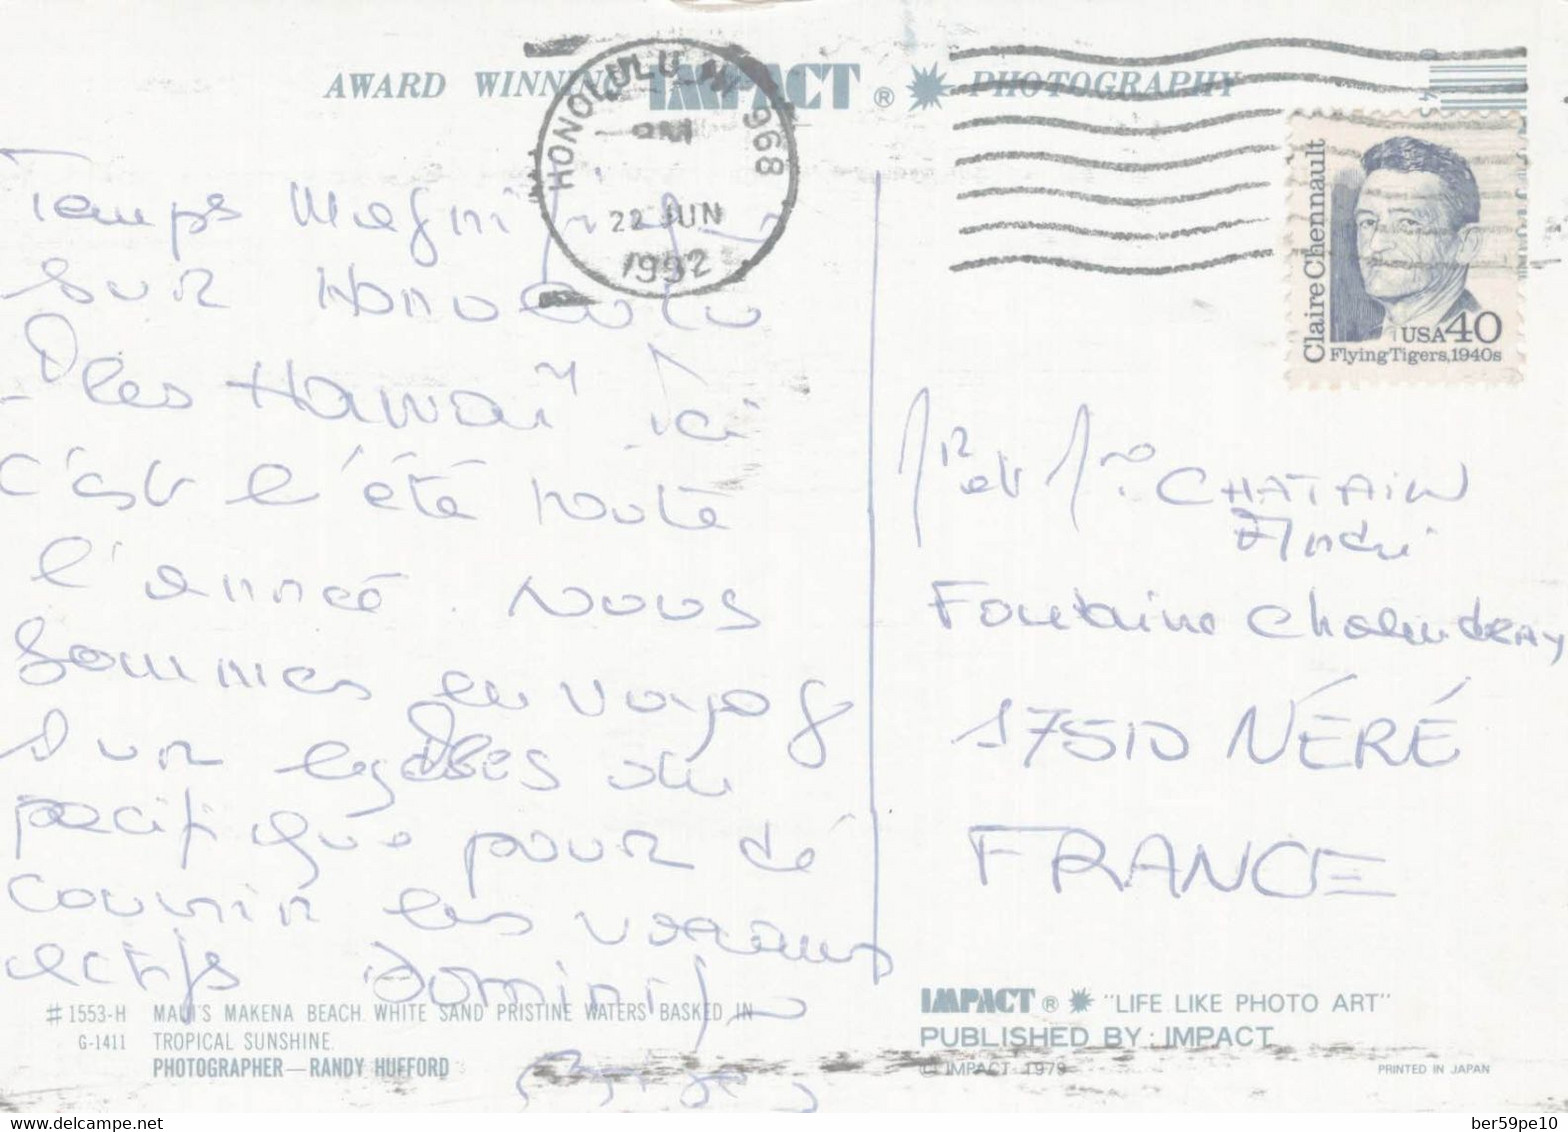 AWARD WINNING IMPACT ® PHOTOGRAPHY
HONOLULU HI 968
PM
22 JUN
1992
Claire Chennault
USA 40
Flying Tigers, 1940s
Temps Magnifique
sur Honolulu
Iles Hawaï Ici
c'est l'été toute
l'année. Nous
sommes en voyag
sur les Iles du
pacifique pour dé
couvrir les volcans
actifs Dominique
Mr et Me CHATAIN
André
Fontaine Chalendray
17510 NÉRÉ
FRANCE
#1553-H MAUI'S MAKENA BEACH. WHITE SAND PRISTINE WATERS BASKED IN
G-1411 TROPICAL SUNSHINE.
PHOTOGRAPHER—RANDY HUFFORD
IMPACT ® "LIFE LIKE PHOTO ART"
PUBLISHED BY: IMPACT
© IMPACT 1979
PRINTED IN JAPAN
www.delcampe.net
ber59pe10